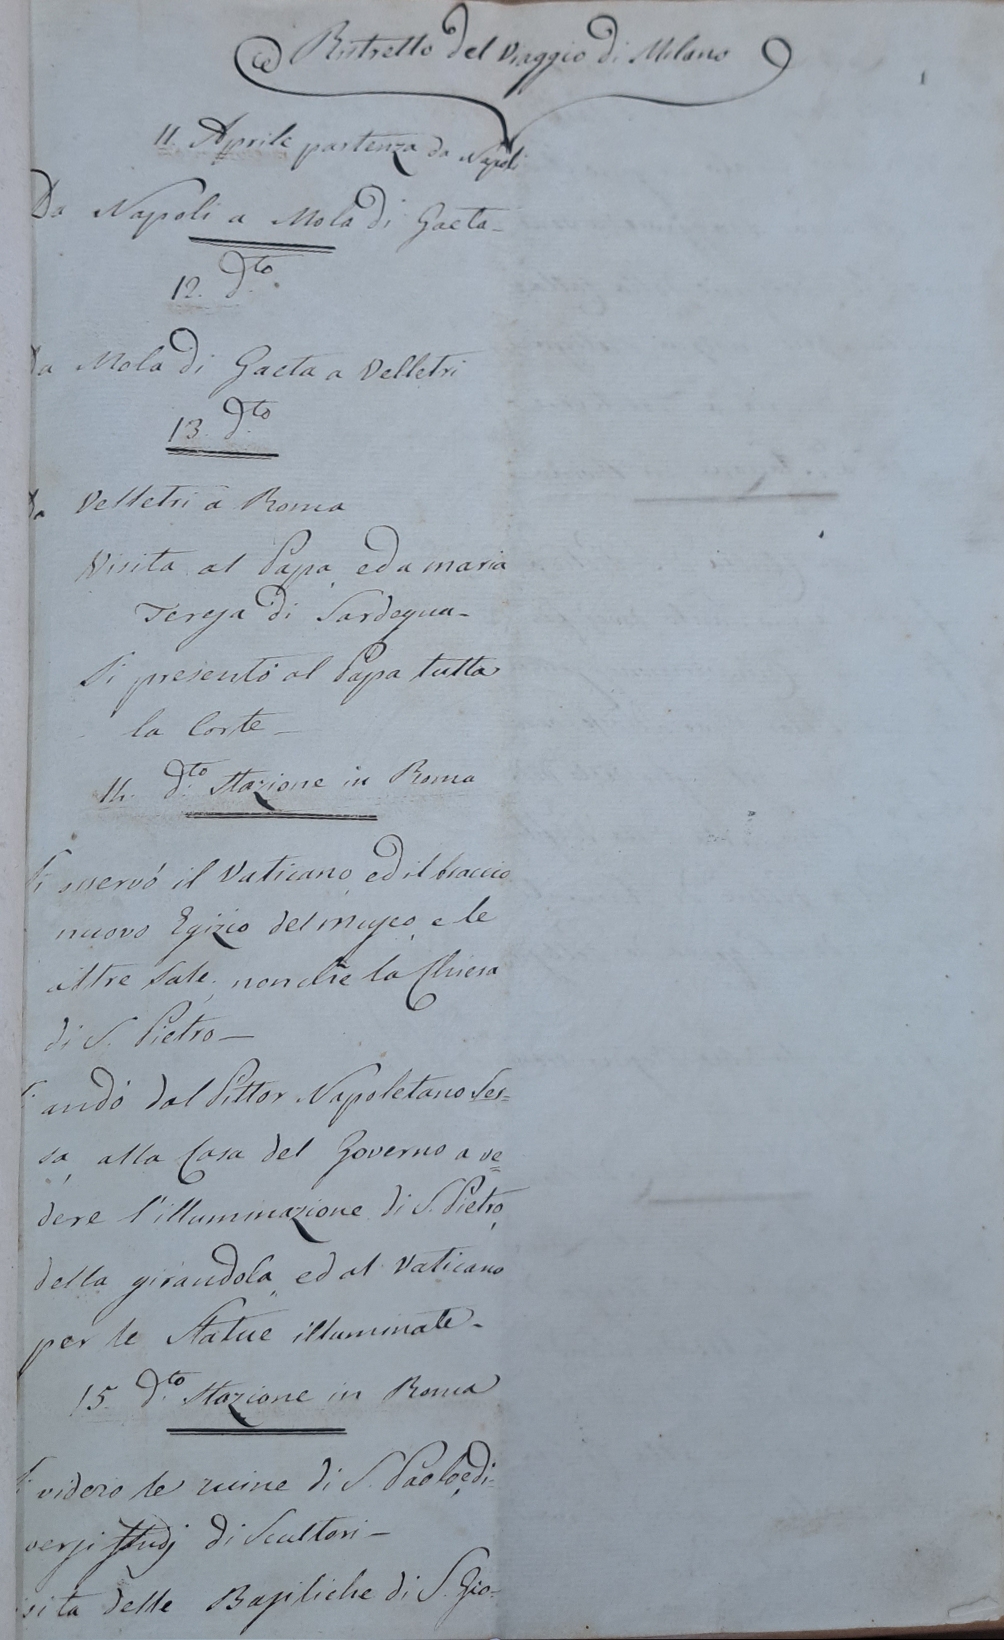 Ristretto del Viaggio di Milano
11. Aprile partenza da Napoli
Da Napoli a Mola di Gaeta_
12. d.to
Da Mola di Gaeta a Velletri
13 d.to
Da Velletri a Roma
Visita al Papa, ed a maria
Teresa di Sardegna_
Si presentò al Papa tutta
la Corte_
14. d.to Stazione in Roma
Si osservò il Vaticano, ed il braccio
nuovo Egizio del museo, e le
altre Sale, nonchè la Chiesa
di S. Pietro_
Si andò dal Pittor Napoletano Ses=
sa, alla Casa del Governo a ve=
dere l'illuminazione di S. Pietro,
della girandola, ed al Vaticano
per le Statue illuminate_
15 d.to Stazione in Roma
Si videro le ruine di S. Paolo, e di=
versi studj di Scultori_
Visita delle Basiliche di S. Gio=